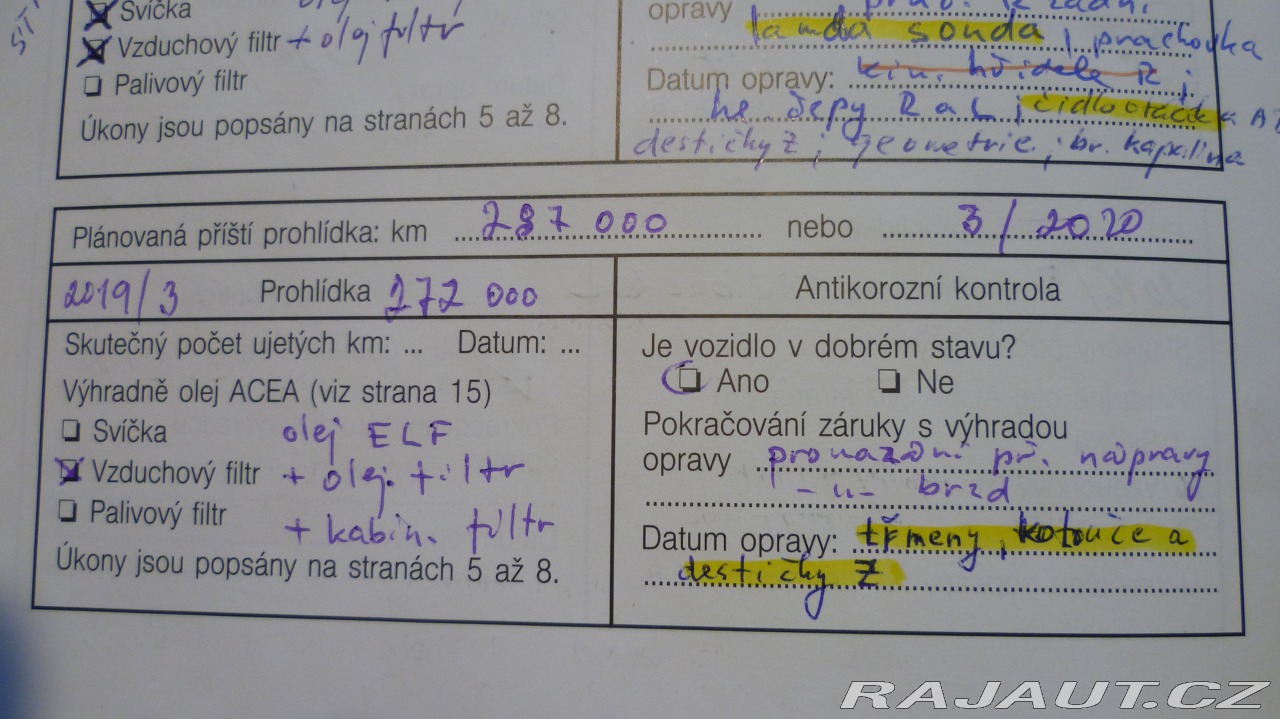 Svíčka
Vzduchový filtr + olej filtr
Palivový filtr
Úkony jsou popsány na stranách 5 až 8.
opravy
lamda sonda, prachovka
Datum opravy: kin. hřídele Z;
he čepy R a L; čidlo otáček a
destičky Z; geometrie; br. kapalina
Plánovaná příští prohlídka: km 287 000 nebo 3/2020
2019/3 Prohlídka 272 000
Skutečný počet ujetých km: ... Datum: ...
Výhradně olej ACEA (viz strana 15)
Svíčka olej ELF
Vzduchový filtr + olej. filtr
Palivový filtr + kabin. filtr
Úkony jsou popsány na stranách 5 až 8.
Antikorozní kontrola
Je vozidlo v dobrém stavu?
Ano Ne
Pokračování záruky s výhradou
opravy př. nápravy
-"- brzd
Datum opravy: třmeny, kotouče a
destičky Z
RAJAUT.CZ